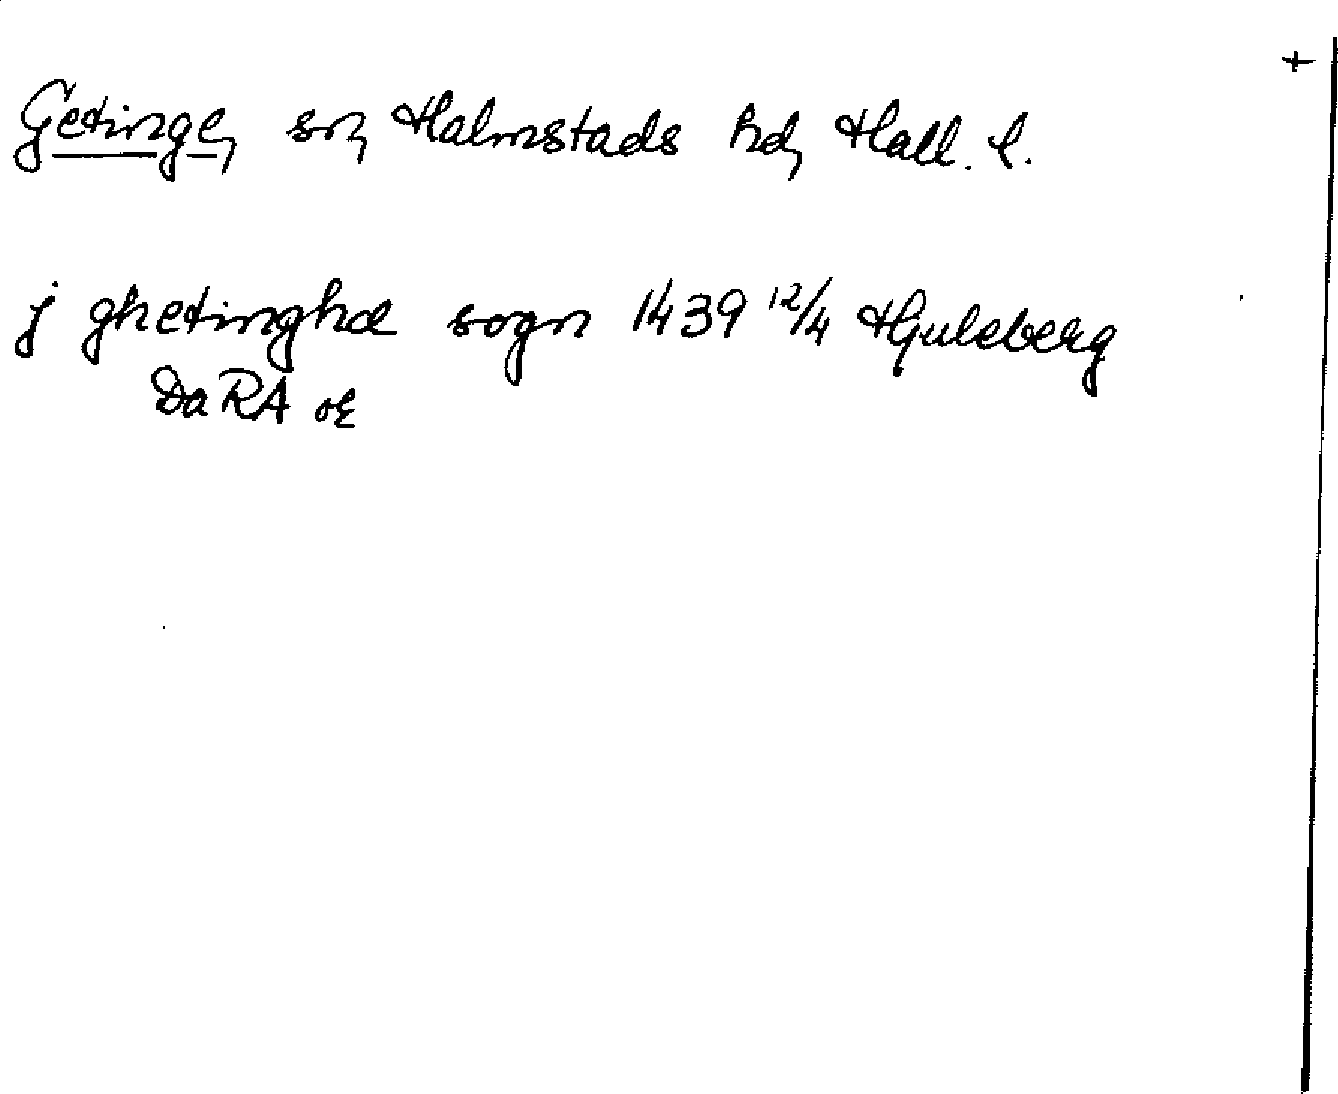 +
Getinge, sn, Halmstads hd, Hall. l.
j ghetinghæ sogn 1439 12/4 Hjuleberg
DaRA or